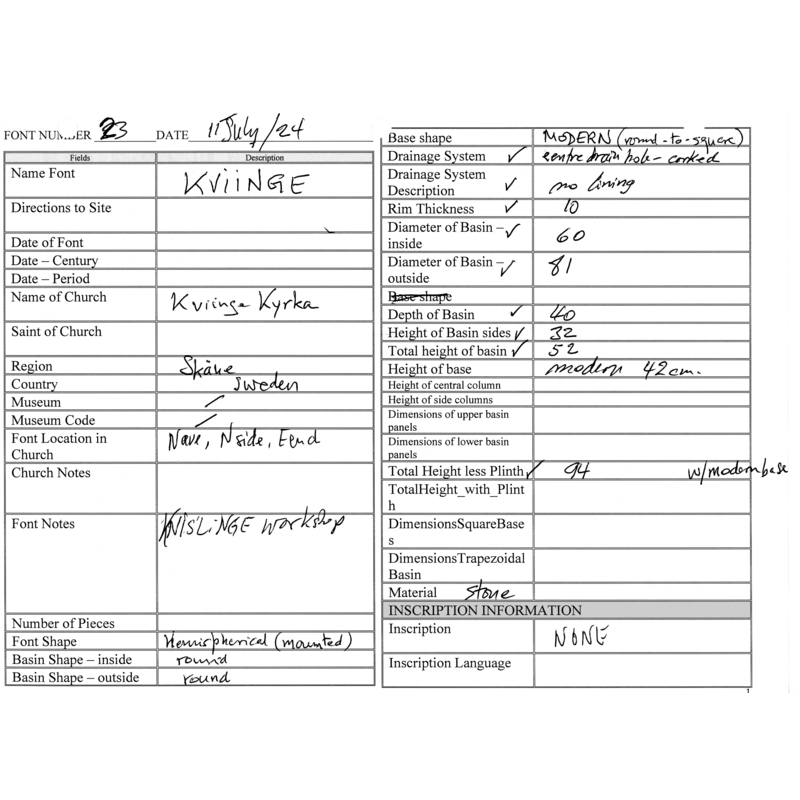 FONT NUMBER 23 DATE 11 July/24
Fields Description
Name Font KVIINGE
Directions to Site
Date of Font
Date – Century
Date – Period
Name of Church Kviinge Kyrka
Saint of Church
Region Skåne
Country Sweden
Museum /
Museum Code /
Font Location in Church Nave, N side, E end
Church Notes
Font Notes NISLINGE workshop
Number of Pieces
Font Shape Hemispherical (mounted)
Basin Shape – inside round
Basin Shape – outside round
Base shape MODERN (round-to-square)
Drainage System ✓ centre drain hole - corked
Drainage System
Description ✓ no lining
Rim Thickness ✓ 10
Diameter of Basin – ✓
inside 60
Diameter of Basin – ✓
outside 81
Base shape
Depth of Basin ✓ 40
Height of Basin sides ✓ 32
Total height of basin ✓ 52
Height of base modern 42cm.
Height of central column
Height of side columns
Dimensions of upper basin
panels
Dimensions of lower basin
panels
Total Height less Plinth ✓ 94 w/modern base
TotalHeight_with_Plint
h
DimensionsSquareBase
s
DimensionsTrapezoidal
Basin
Material stone
INSCRIPTION INFORMATION
Inscription NONE
Inscription Language
1